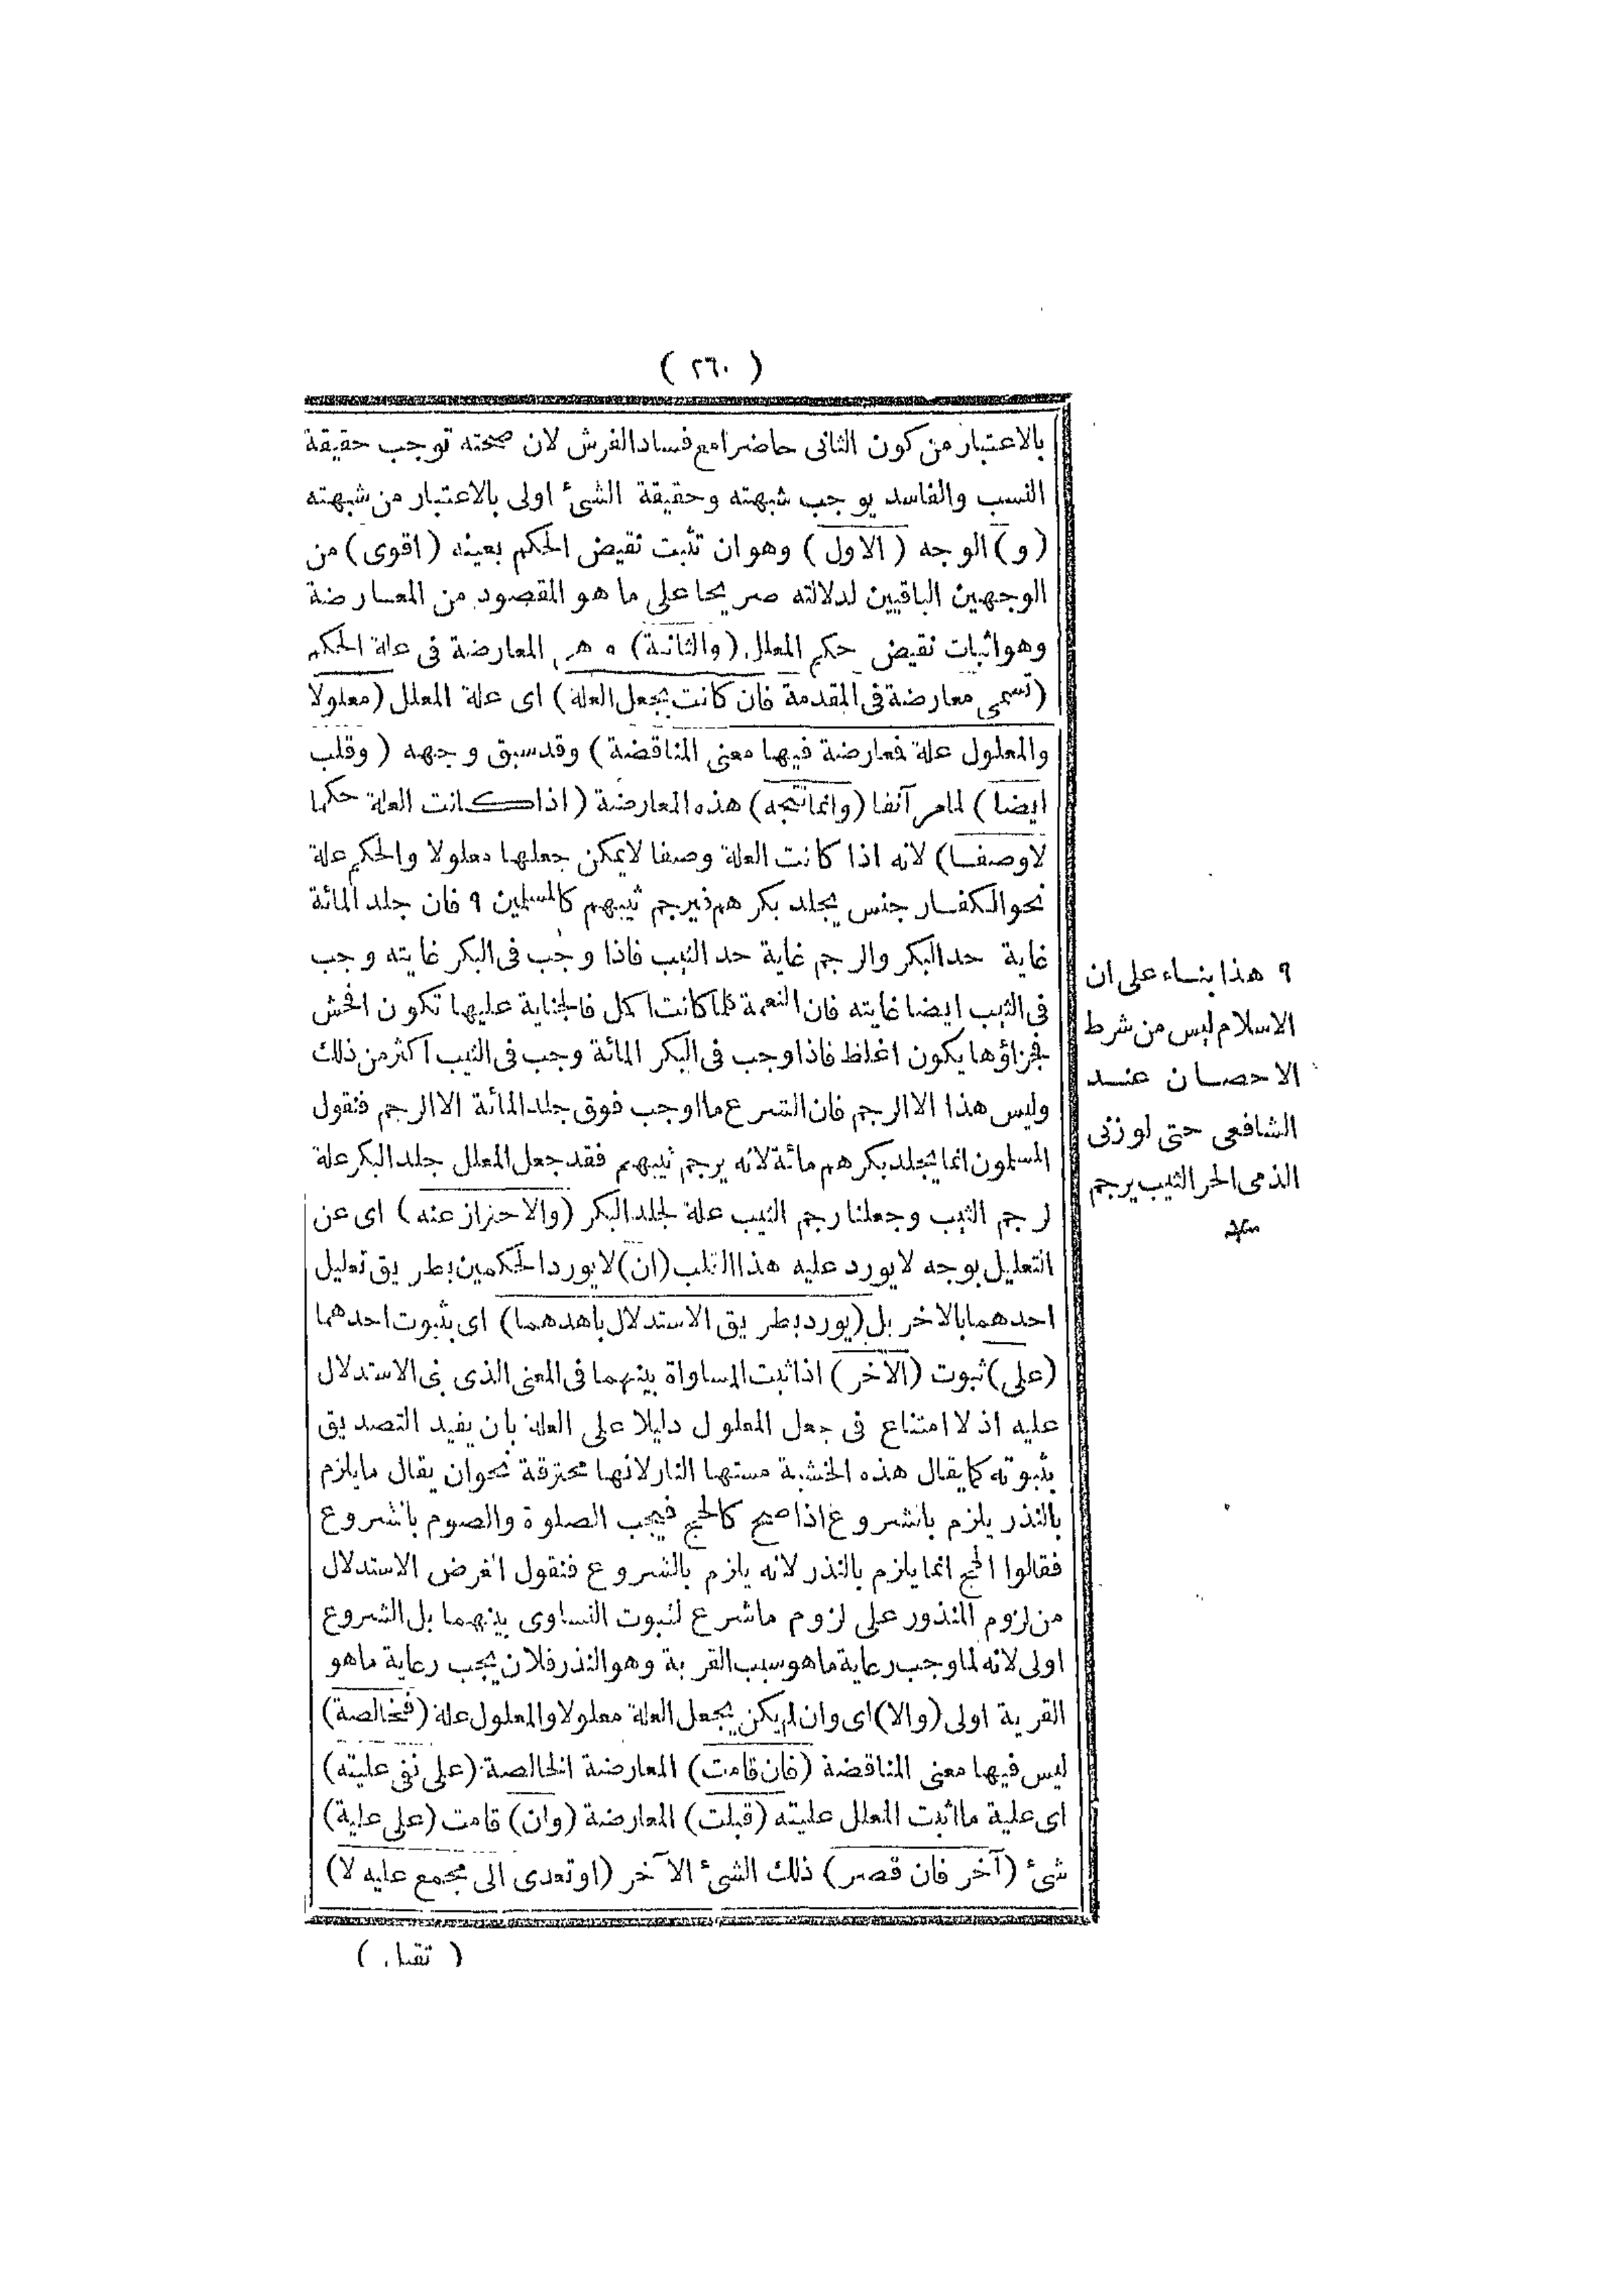 ( ٢٦٠ )
بالاعتبار من كون الثانى حاضرا مع فساد الفرش لان صحته توجب حقيقة
النسب والفاسد يوجب شبهته وحقيقة الشئ اولى بالاعتبار من شبهته
( و ) الوجه ( الاول ) وهو ان تثبت نقيض الحكم بعينه ( اقوى ) من
الوجهين الباقيين لدلالته صريحا على ما هو المقصود من المعارضة
وهو اثبات نقيض حكم المعلل ( والثانية ) وهى المعارضة فى علة الحكم
( تسمى معارضة فى المقدمة فان كانت بجعل العلة ) اى علة المعلل ( معلولا
والمعلول علة فعارضة فيها معنى المناقضة ) وقد سبق وجهه ( وقلب
ايضا ) لما مر آنفا ( وانما تتجه ) هذه المعارضة ( اذا كانت العلة حكما
لا وصفا ) لانه اذا كانت العلة وصفا لا يمكن جعلها معلولا والحكم علة
نحو الكفار جنس يجلد بكرهم فيرجم ثيبهم كالمسلمين ٩ فان جلد المائة
غاية حد البكر والرجم غاية حد الثيب فاذا وجب فى البكر غايته وجب
فى الثيب ايضا غايته فان النعمة كلما كانت اكمل فالجناية عليها تكون افحش
فجزاؤها يكون اغلظ فاذا وجب فى البكر المائة وجب فى الثيب اكثر من ذلك
وليس هذا الا الرجم فان الشرع ما اوجب فوق جلد المائة الا الرجم فنقول
المسلمون انما يجلد بكرهم مائة لانه يرجم ثيبهم فقد جعل المعلل جلد البكر علة
لرجم الثيب وجعلنا رجم الثيب علة لجلد البكر ( والاحتراز عنه ) اى عن
التعليل بوجه لا يورد عليه هذا القلب ( ان ) لا يورد الحكمين بطريق تعليل
احدهما بالاخر بل ( يورد بطريق الاستدلال باهدهما ) اى بثبوت احدهما
( على ) ثبوت ( الآخر ) اذا ثبت المساواة بينهما فى المعنى الذى بنى الاستدلال
عليه اذ لا امتناع فى جعل المعلول دليلا على العلة بان يفيد التصديق
بثبوته كما يقال هذه الخشبة مستها النار لانها محترقة نحو ان يقال ما يلزم
بالنذر يلزم بالشروع اذا صح كالحج فيجب الصلوة والصوم بالشروع
فقالوا الحج انما يلزم بالنذر لانه يلزم بالشروع فنقول الغرض الاستدلال
من لزوم المنذور على لزوم ما شرع لثبوت التساوى بينهما بل الشروع
اولى لانه لما وجب رعاية ما هو سبب القربة وهو النذر فلان يجب رعاية ما هو
القربة اولى ( والا ) اى وان لم يكن بجعل العلة معلولا والمعلول علة ( فخالصة )
ليس فيها معنى المناقضة ( فان قامت ) المعارضة الخالصة ( على نفى عليته )
اى علية ما اثبت المعلل عليته ( قبلت ) المعارضة ( وان ) قامت ( على علية )
شئ ( آخر فان قصر ) ذلك الشئ الآخر ( او تعدى الى مجمع عليه لا )
( تقبل )
٩ هذا بناء على ان
الاسلام ليس من شرط
الاحصان عند
الشافعى حتى لو زنى
الذمى الحر الثيب يرجم